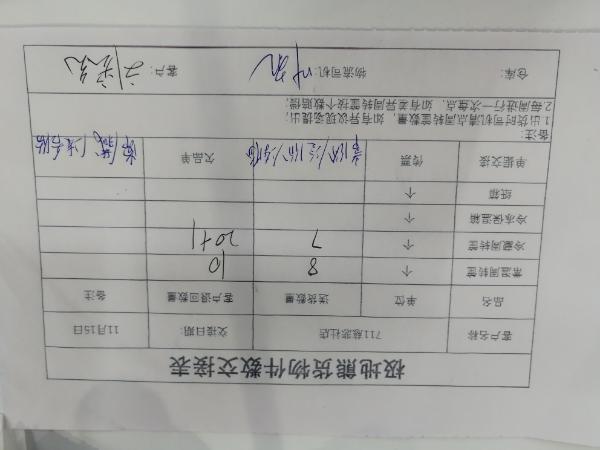 极地熊货物件数交接表
客户名称 711慈悲社店 交接日期: 11月15日
品名 单位 送货数量 客户退回数量 备注
常温周转筐 个 8 10
冷藏周转筐 个 7 20+1
冷冻保温箱 个
纸箱 个
单据交接 传票 欠品单
备注:
1.出货时司机清点周转筐数量,如有异议现场提出;
2.每周进行一次盘点,如有差异周转筐按个数赔偿;
仓库: 物流司机: 客户: